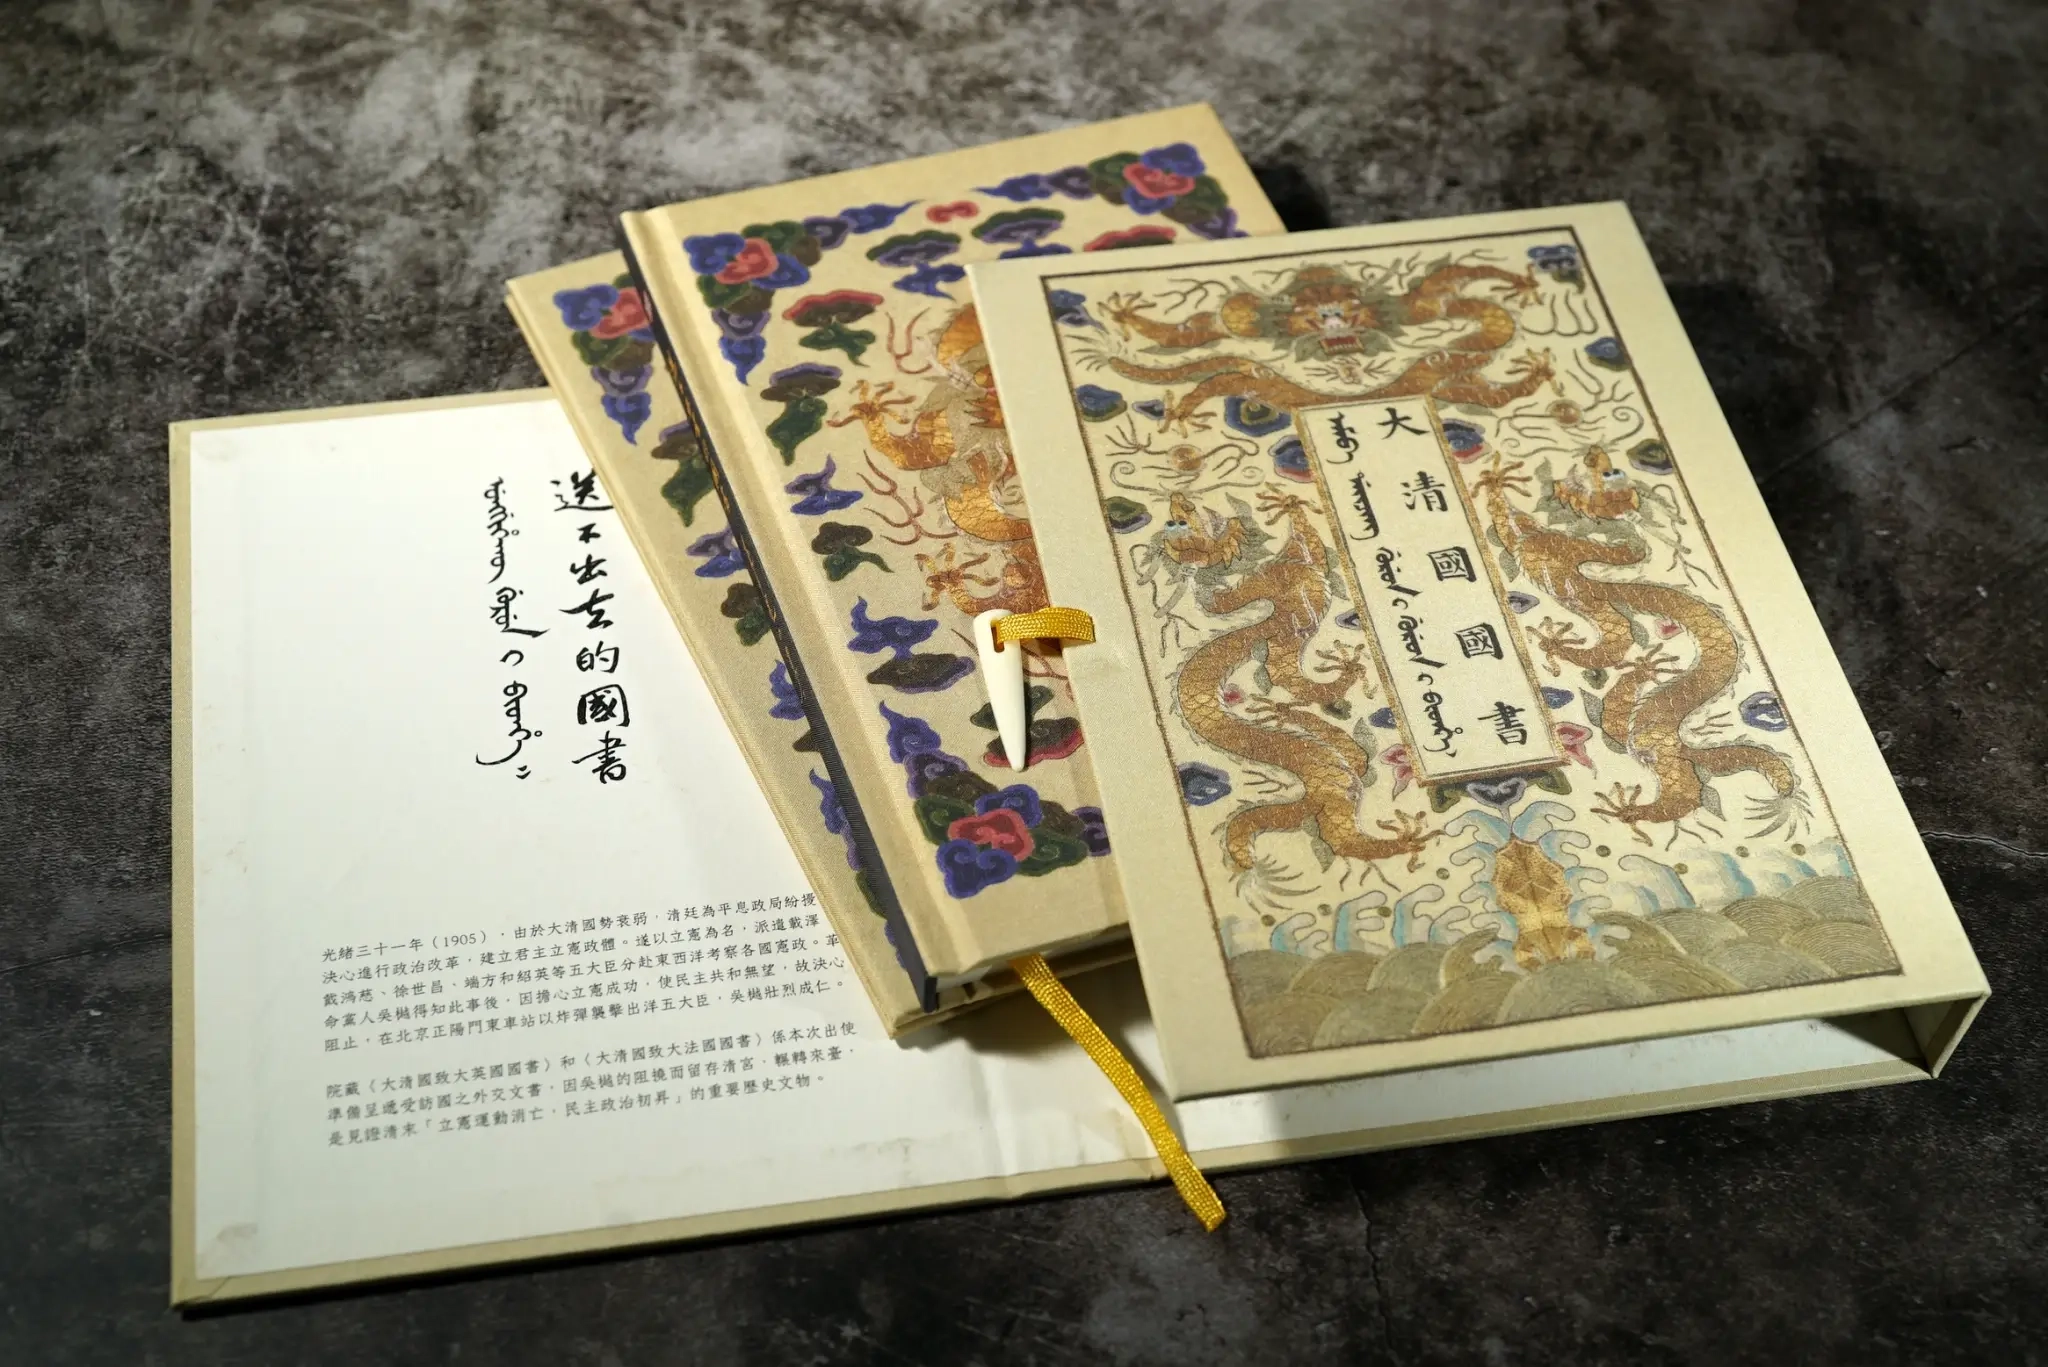 送不出去的國書
光緒三十一年（1905），由於大清國勢衰弱，清廷為平息政局紛擾
決心進行政治改革，建立君主立憲政體。遂以立憲為名，派遣載澤
戴鴻慈、徐世昌、端方和紹英等五大臣分赴東西洋考察各國憲政。革
命黨人吳樾得知此事後，因擔心立憲成功，使民主共和無望，故決心
阻止，在北京正陽門東車站以炸彈襲擊出洋五大臣，吳樾壯烈成仁。
院藏〈大清國致大英國國書〉和〈大清國致大法國國書〉係本次出使
準備呈遞受訪國之外交文書，因吳樾的阻撓而留存清宮，輾轉來臺，
是見證清末「立憲運動消亡，民主政治初昇」的重要歷史文物。
大清國國書